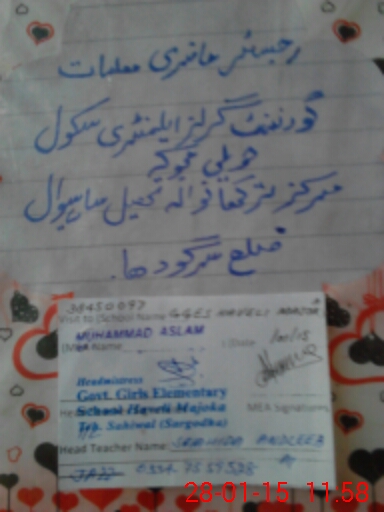 رجسٹر حاضری معلمات
گورنمنٹ گرلز ایلیمنٹری سکول
حویلی مجوکہ
مرکز ترکھانوالہ تحصیل ساہیوال
ضلع سرگودھا.
38450097
Visit to (School Name GGES HAVELI
MUHAMMAD ASLAM
(MEA Name Date
Headmistress
Govt. Girls Elementary
School Haveli Majoka
Teh. Sahiwal (Sargodha)
MEA Signatures
Head Teacher Name: ANDLEEB
28-01-15 11:58